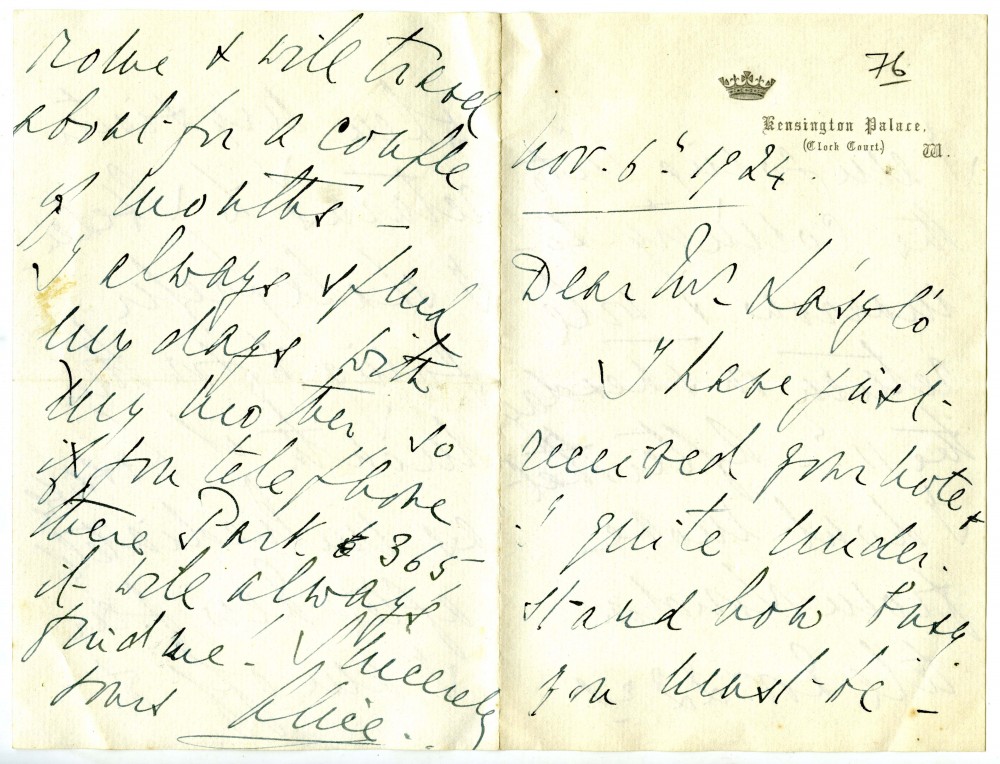 76
Kensington Palace,
(Clock Court.) W.
Nov. 6th 1924.
Dear Mr. László
I have just
received your note &
I quite under-
stand how busy
you must be –
Rome & will travel
about for a couple
of months –
I always spend
my days with
my mother so
if you telephone
there Park. 365
it will always
find me. Sincerely
yours Alice.